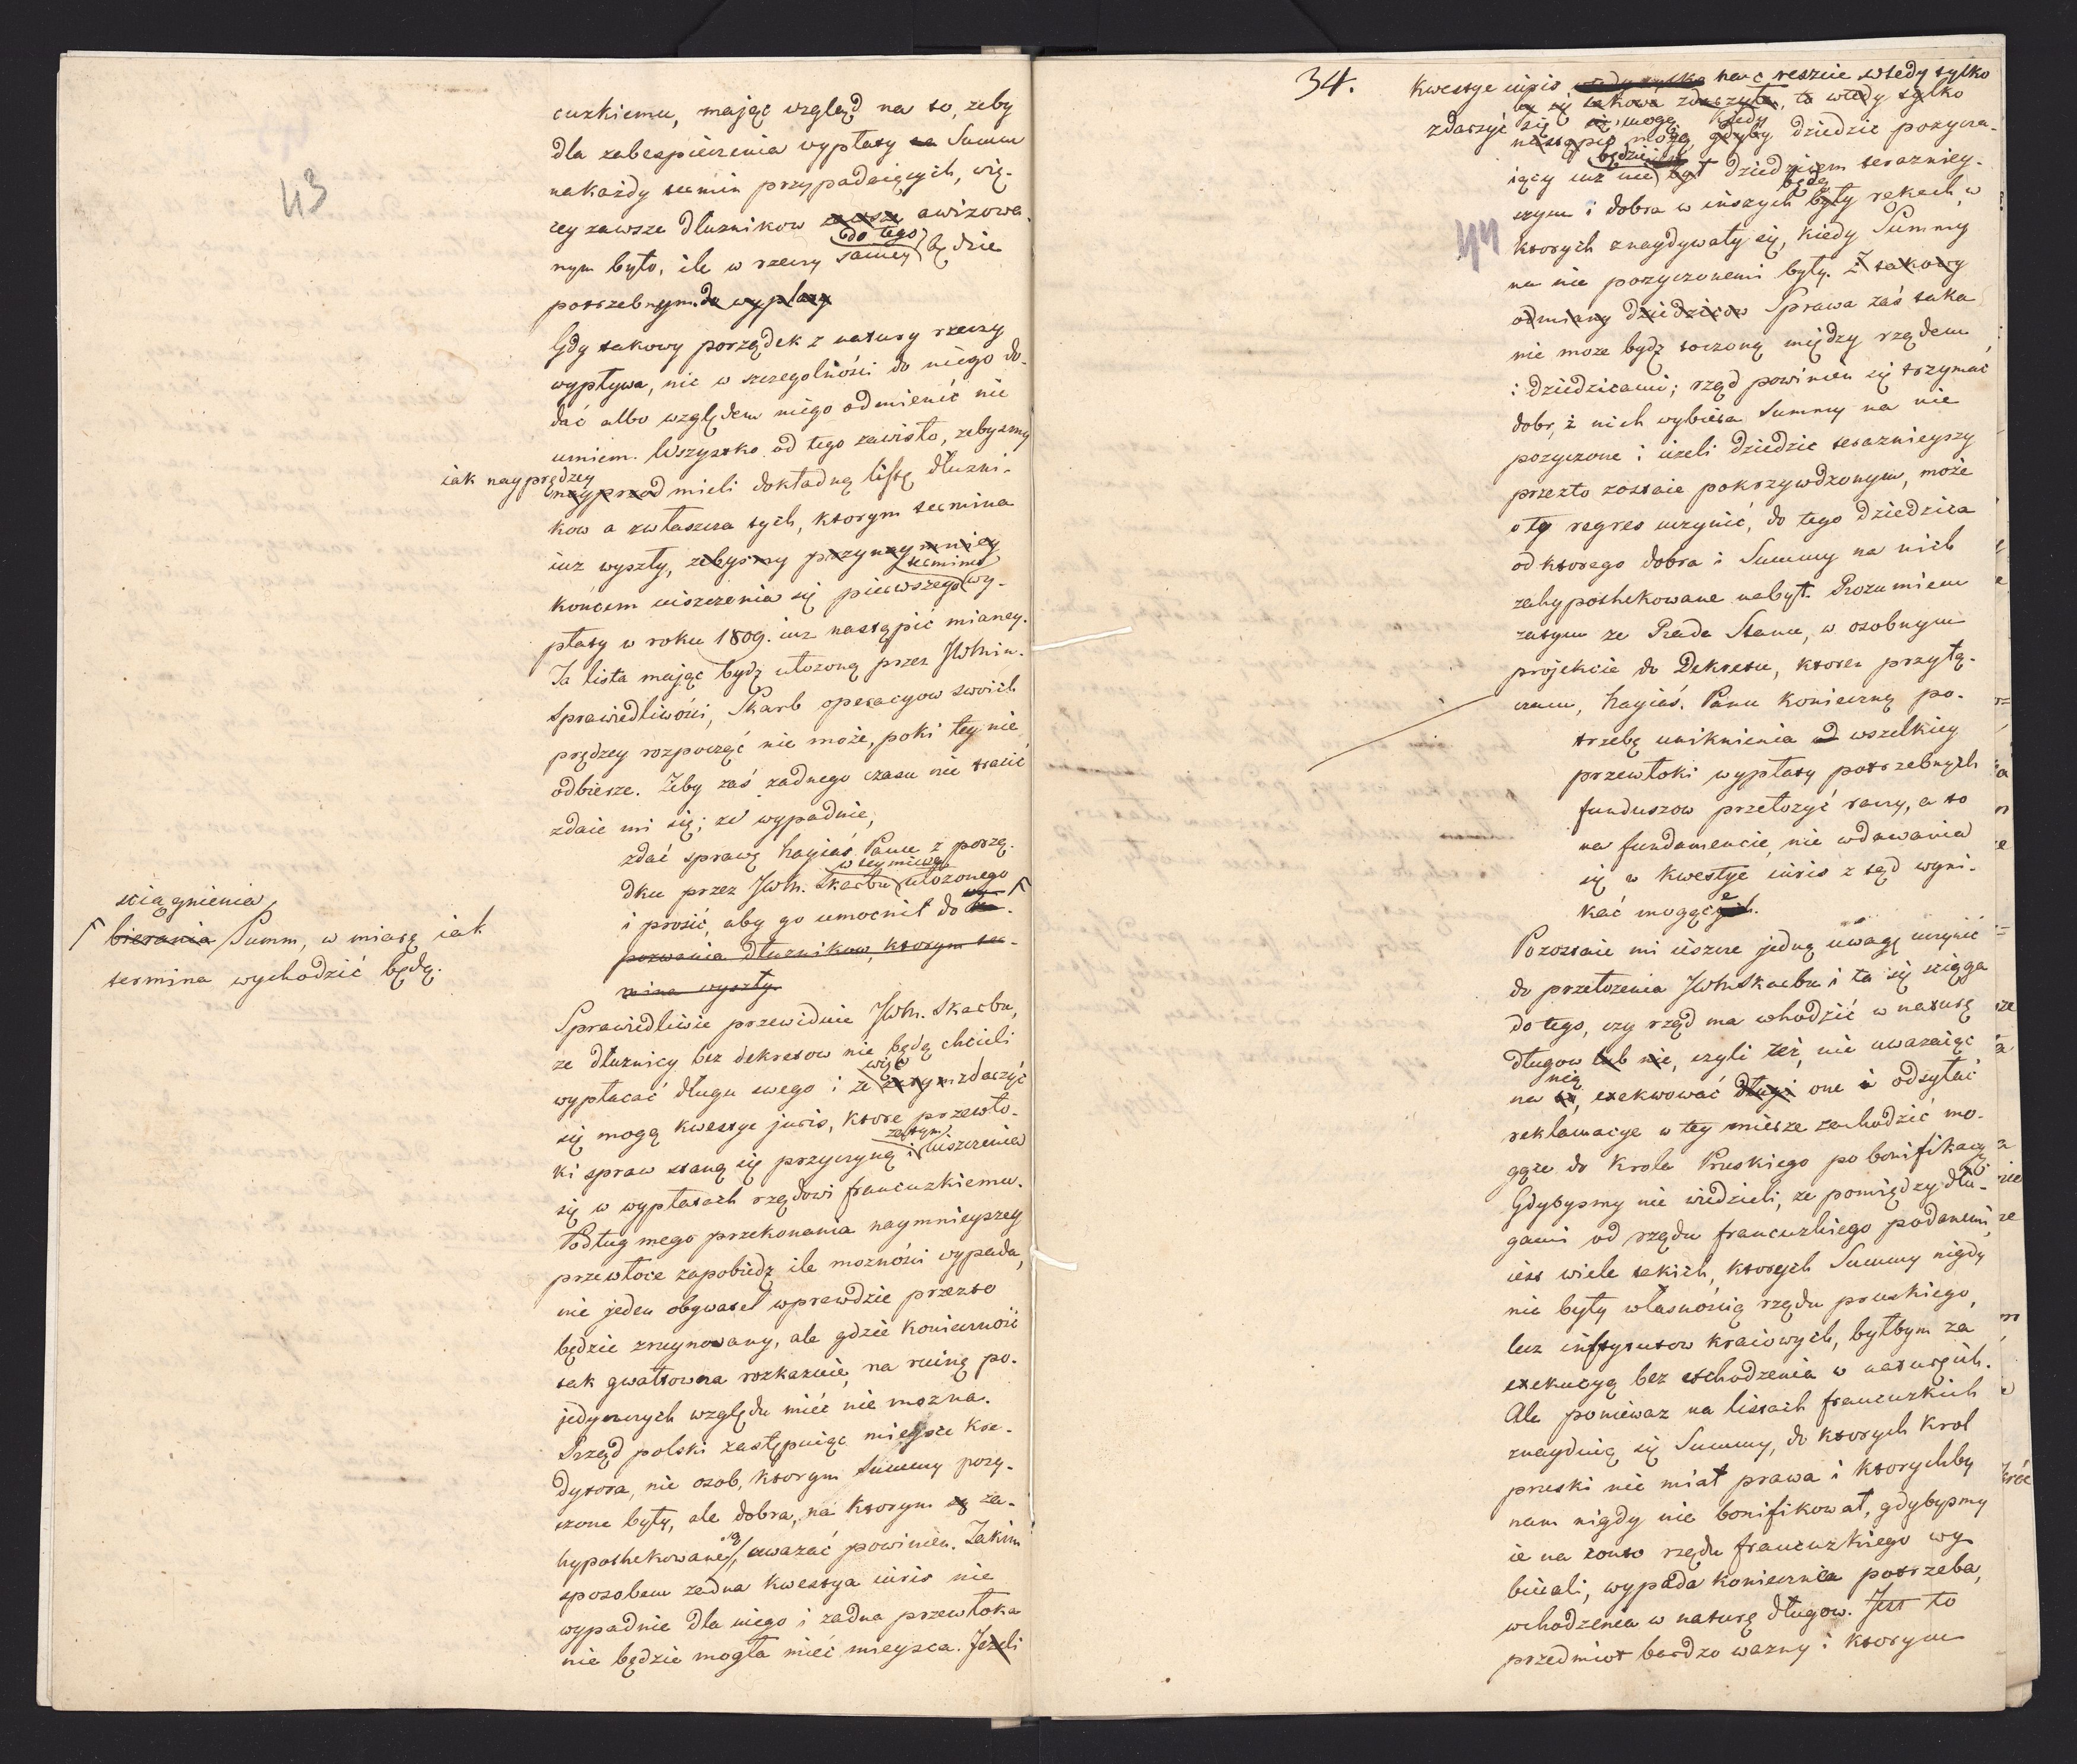 43
cuzkiemu, mając wzgląd na to, zeby
dla zabespieczenia wypłaty na Summ
na każdy termin przypadaiących, wię-
cey zawsze dłuznikow zawsze awizowa-
do tego
nym było, ile w rzeczy samey będzie
potrzebnym do wypłaty
Gdy takowy porządek z natury rzeczy
wypływa, nic w szczegolności do niego do-
dać albo względem niego odmienić nie
umiem. Wszystko od tego zawisło, zebysmy
iak nayprędzey
nayprzod mieli dokładną listę dłuzni-
kow a zwłaszcza tych, ktorym termina
iuz wyszły, zebysmy przynaymniey
termino
końcem uiszczenia się pierwszego wy-
płaty w roku 1809. iuz nastąpić mianey.
Ta lista mając bydź ułozoną przez JWMin.
Sprawiedliwości, Skarb operacyow swoich
prędzey rozpocząć nie może, poki tey nie
odbierze. Żeby zaś zadnego czasu nie tracić
zdaie mi się; ze wypadnie,
zdać sprawę Nayjaś. Panu z porzą-
w tey mierze
dku przez JWM. Skarbu ułozonego
i prosić, aby go umocnił do
pozwania dłuznikow, ktorym ter-
mina wyszły.
sciągnienia
bierania Summ, w miarę iak
termina wychodzić będą.
Sprawiedliwie przewiduie JWM. Skarbu,
ze dłuznicy bez dekretow nie będą chcieli
więc
wypłacać długu swego i ze zatym zdarzyć
się mogą kwestye juris, ktore przewło-
zatym
ki spraw staną się przyczyną i uiszczenia
się w wypłatach rządowi francuzkiemu.
Podług mego przekonania naymnieyszey
przewłoce zapobiedz ile mozności wypada,
nie jeden obywatel wprawdzie przezto
będzie zruynowany, ale gdzie konieczność
tak gwałtowna rozkazuie, na ruinę po-
jedynczych względu mieć nie mozna.
Rząd polski zastępuiąc mieysce kre-
dytora, nie osob, ktorym Summy pozy-
czone były, ale dobra, na ktorym są za-
są
hypothekowane, uważać powinien. Takim
sposobem zadna kwestya iuris nie
wypadnie dla niego i zadna przewłoka
nie będzie mogła mieć mieysca. Jezeli
34.
44
kwestye iuris wtedy tylko nareszcie wtedy tylko
by się takowa zdarzyła, to wtedy tylko
zdarzyć się mogą kiedy
nastąpić może gdyby dziedzic pozycza-
będzie
iący iuz nie był dziedzicem terazniey-
będą
szym i dobra w inszych były rękach, w
ktorych znaydywały się, kiedy Summy
na nie pozyczonemi były. Z takowey
odmiany dziedzicow Sprawa zaś taka
nie moze bydź toczoną między rządem
i dziedzicami; rząd powinien się trzymać
dobr, z nich wybiera Summy na nie
pozyczone i iezeli dziedzic teraznieyszy
przezto zostaie pokrzywdzonym, może
o to regres uczynić, do tego dziedzica
od ktorego dobra i Summy na nich
zahypothekowane nabył. Rozumiem
zatym ze Rada Stanu, w osobnym
projekcie do Dekretu, ktoren przyłą-
czam, Nayjaś. Panu konieczną po-
trzebę uniknienia od wszelkiey
przewłoki wypłaty potrzebnych
funduszow przełozyć raczy, a to
na fundamencie, nie wdawania
się w kwestye iuris z tąd wyni-
kać mogące.
Pozostaie mi ieszcze jedną uwagę uczynić
do przełozenia JWMSkarbu i ta się sciąga
do tego, czy rząd ma wchodzić w naturę
długow lub nie, czyli też, nie uwazaiąc
nią
na to, exekwować długi one i odsyłać
reklamacye w tey mierze zachodzić mo-
gące do Krola Pruskiego po bonifikacyą
Gdybysmy nie wiedzieli, ze pomiędzy dłu-
gami od rządu francuzkiego podanemi,
iest wiele takich, ktorych Summy nigdy
nie były własnością rządu pruskiego,
lecz instytutow kraiowych, byłbym za
exekucyą bez wchodzenia w naturę ich.
Ale poniewaz na listach francuzkich
znayduią się Summy, do ktorych Krol
pruski nie miał prawa i ktorychby
nam nigdy nie bonifikował, gdybysmy
ie na conto rządu francuzkiego wy-
bierali, wypada konieczna potrzeba,
wchodzenia w naturę długow. Jest to
przedmiot bardzo wazny i ktorym